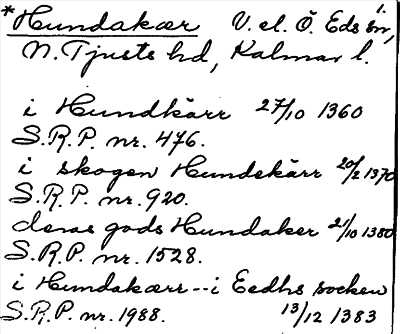 *Hundakær V. el. Ö. Eds sn, 1.
N. Tjusts hd, Kalmar l.
i Hundkärr 27/10 1360
S.R.P. nr. 476.
i skogen Hundekärr 20/2 1370
S.R.P. nr. 920.
deras gods Hundaker 21/10 1380
S.R.P. nr. 1528.
i Hundakærr -- i Eedhs socken
S.R.P. nr. 1988. 13/12 1383